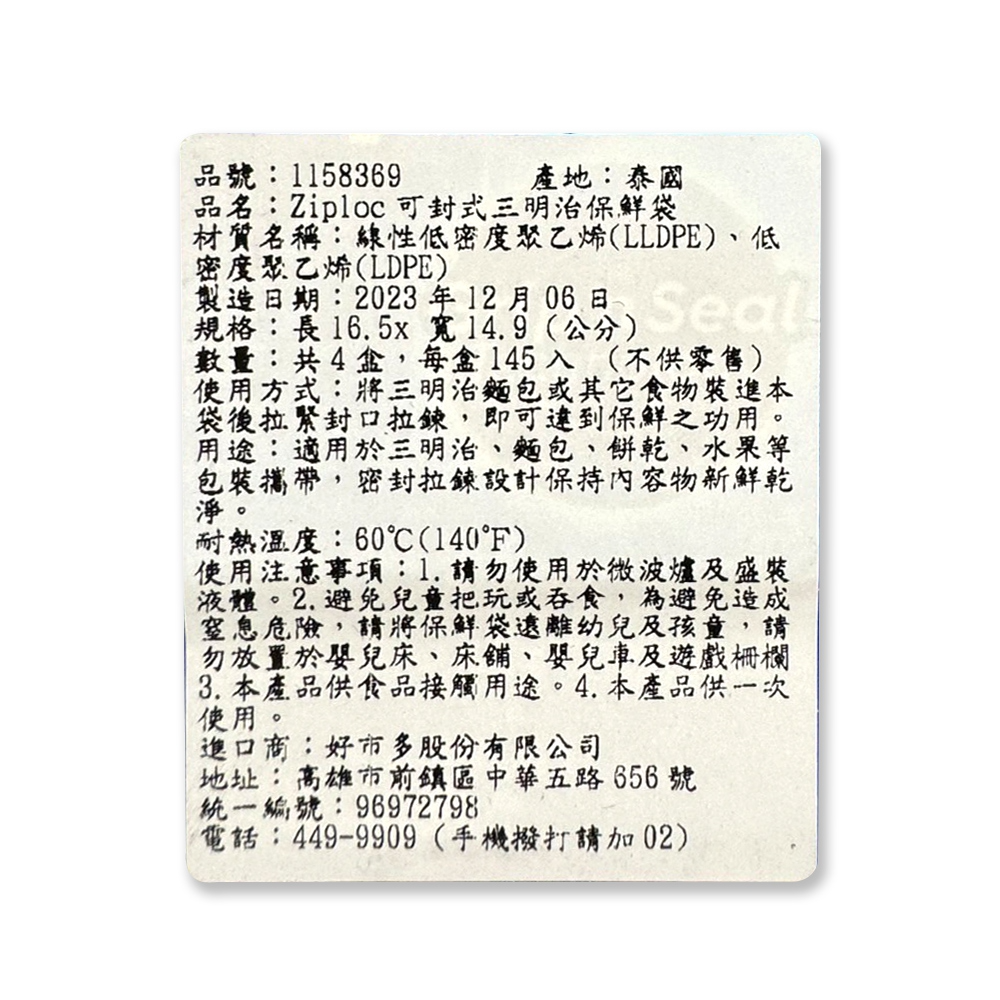 品號：1158369 產地：泰國
品名：Ziploc 可封式三明治保鮮袋
材質名稱：線性低密度聚乙烯(LLDPE)、低
密度聚乙烯(LDPE)
製造日期：2023 年 12 月 06 日
規格：長 16.5x 寬 14.9 (公分)
數量：共 4 盒，每盒 145 入 （不供零售）
使用方式：將三明治麵包或其它食物裝進本
袋後拉緊封口拉鍊，即可達到保鮮之功用。
用途：適用於三明治、麵包、餅乾、水果等
包裝攜帶，密封拉鍊設計保持內容物新鮮乾
淨。
耐熱溫度：60℃(140℉)
使用注意事項：1.請勿使用於微波爐及盛裝
液體。2.避免兒童把玩或吞食，為避免造成
窒息危險，請將保鮮袋遠離幼兒及孩童，請
勿放置於嬰兒床、床舖、嬰兒車及遊戲柵欄
3.本產品供食品接觸用途。4.本產品供一次
使用。
進口商：好市多股份有限公司
地址：高雄市前鎮區中華五路 656 號
統一編號：96972798
電話：449-9909 (手機撥打請加 02)
Seal